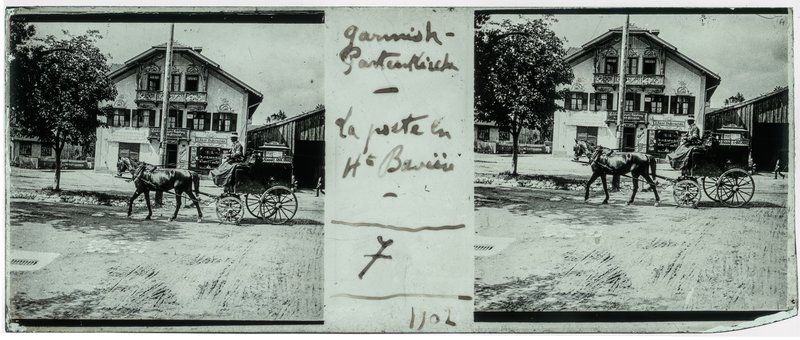 Garmish-
Partenkirch
-
La poste en
Hte Bavière
-
7
1102